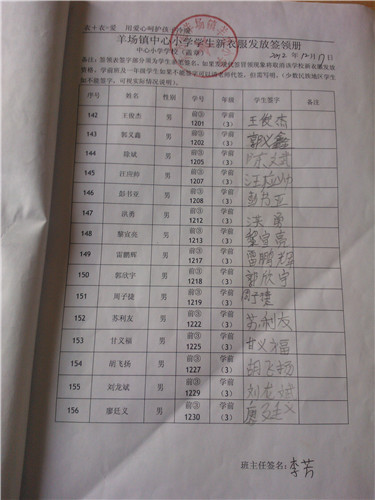 衣+衣=爱 用爱心呵护孩
羊场镇中心小学学生新衣服发放签领册
中心小学学校（盖章） 2012年12月17日
序号 姓名 性别 学号 年级 学生签字 备注
142 王俊杰 男 前③1201 学前（3） 王俊杰
143 郭义鑫 男 前③1202 学前（3） 郭义鑫
144 徐斌 男 前③1205 学前（3）
145 汪应帅 男 前③1207 学前（3） 汪应帅
146 彭书亚 男 前③1208 学前（3） 彭书亚
147 洪勇 男 前③1212 学前（3） 洪勇
148 黎宣亮 男 前③1213 学前（3） 黎宣亮
149 雷鹏辉 男 前③1217 学前（3） 雷鹏辉
150 郭欣宇 男 前③1218 学前（3） 郭欣宇
151 周子捷 男 前③1219 学前（3）
152 苏利友 男 前③1222 学前（3） 苏利友
153 甘义福 男 前③1225 学前（3） 甘义福
154 胡飞扬 男 前③1227 学前（3） 胡飞扬
155 刘龙斌 男 前③1229 学前（3） 刘龙斌
156 廖廷义 男 前③1230 学前（3） 廖廷义
班主任签名：李芳